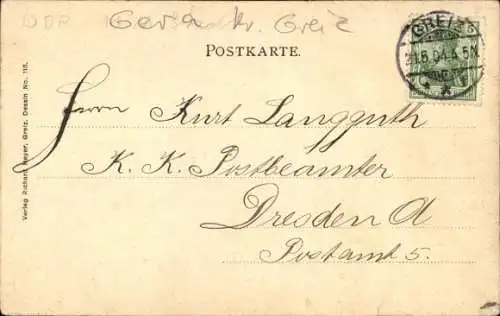 DDR Gera kr. Greiz
GREIZ
5
21.5.04.4-5N
POSTKARTE.
Herrn Kurt Langguth
K. K. Postbeamter
Dresden A
Postamt 5.
Verlag Richard Meyer, Greiz. Dessin No. 118.